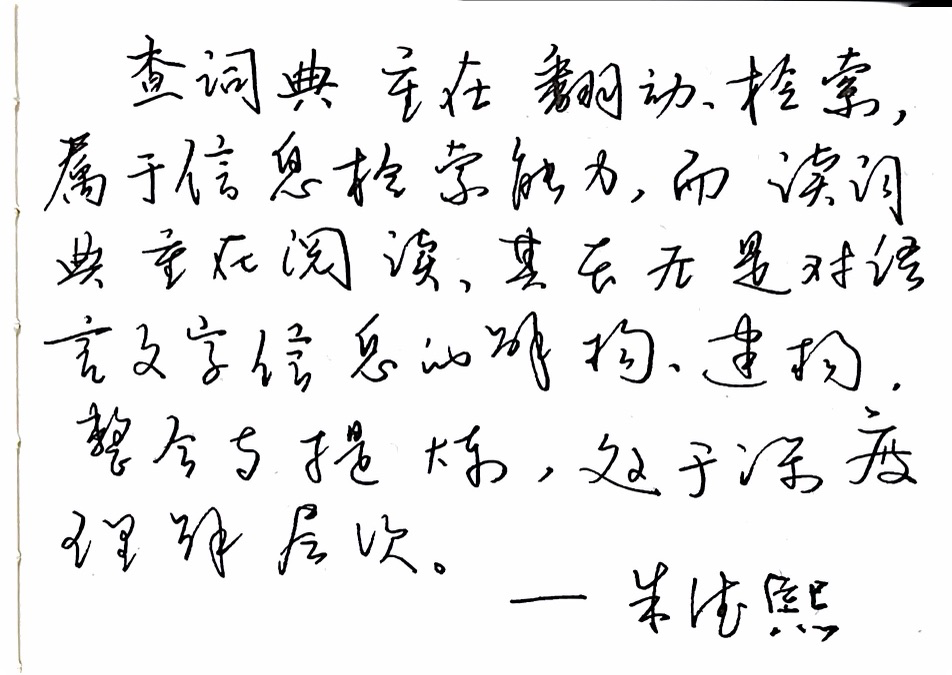 查词典重在翻动、检索，
属于信息检索能力，而读词
典重在阅读、其长无是对语
言文字信息的解构、建构、
整合与提炼，处于深度
理解层次。
—朱德熙